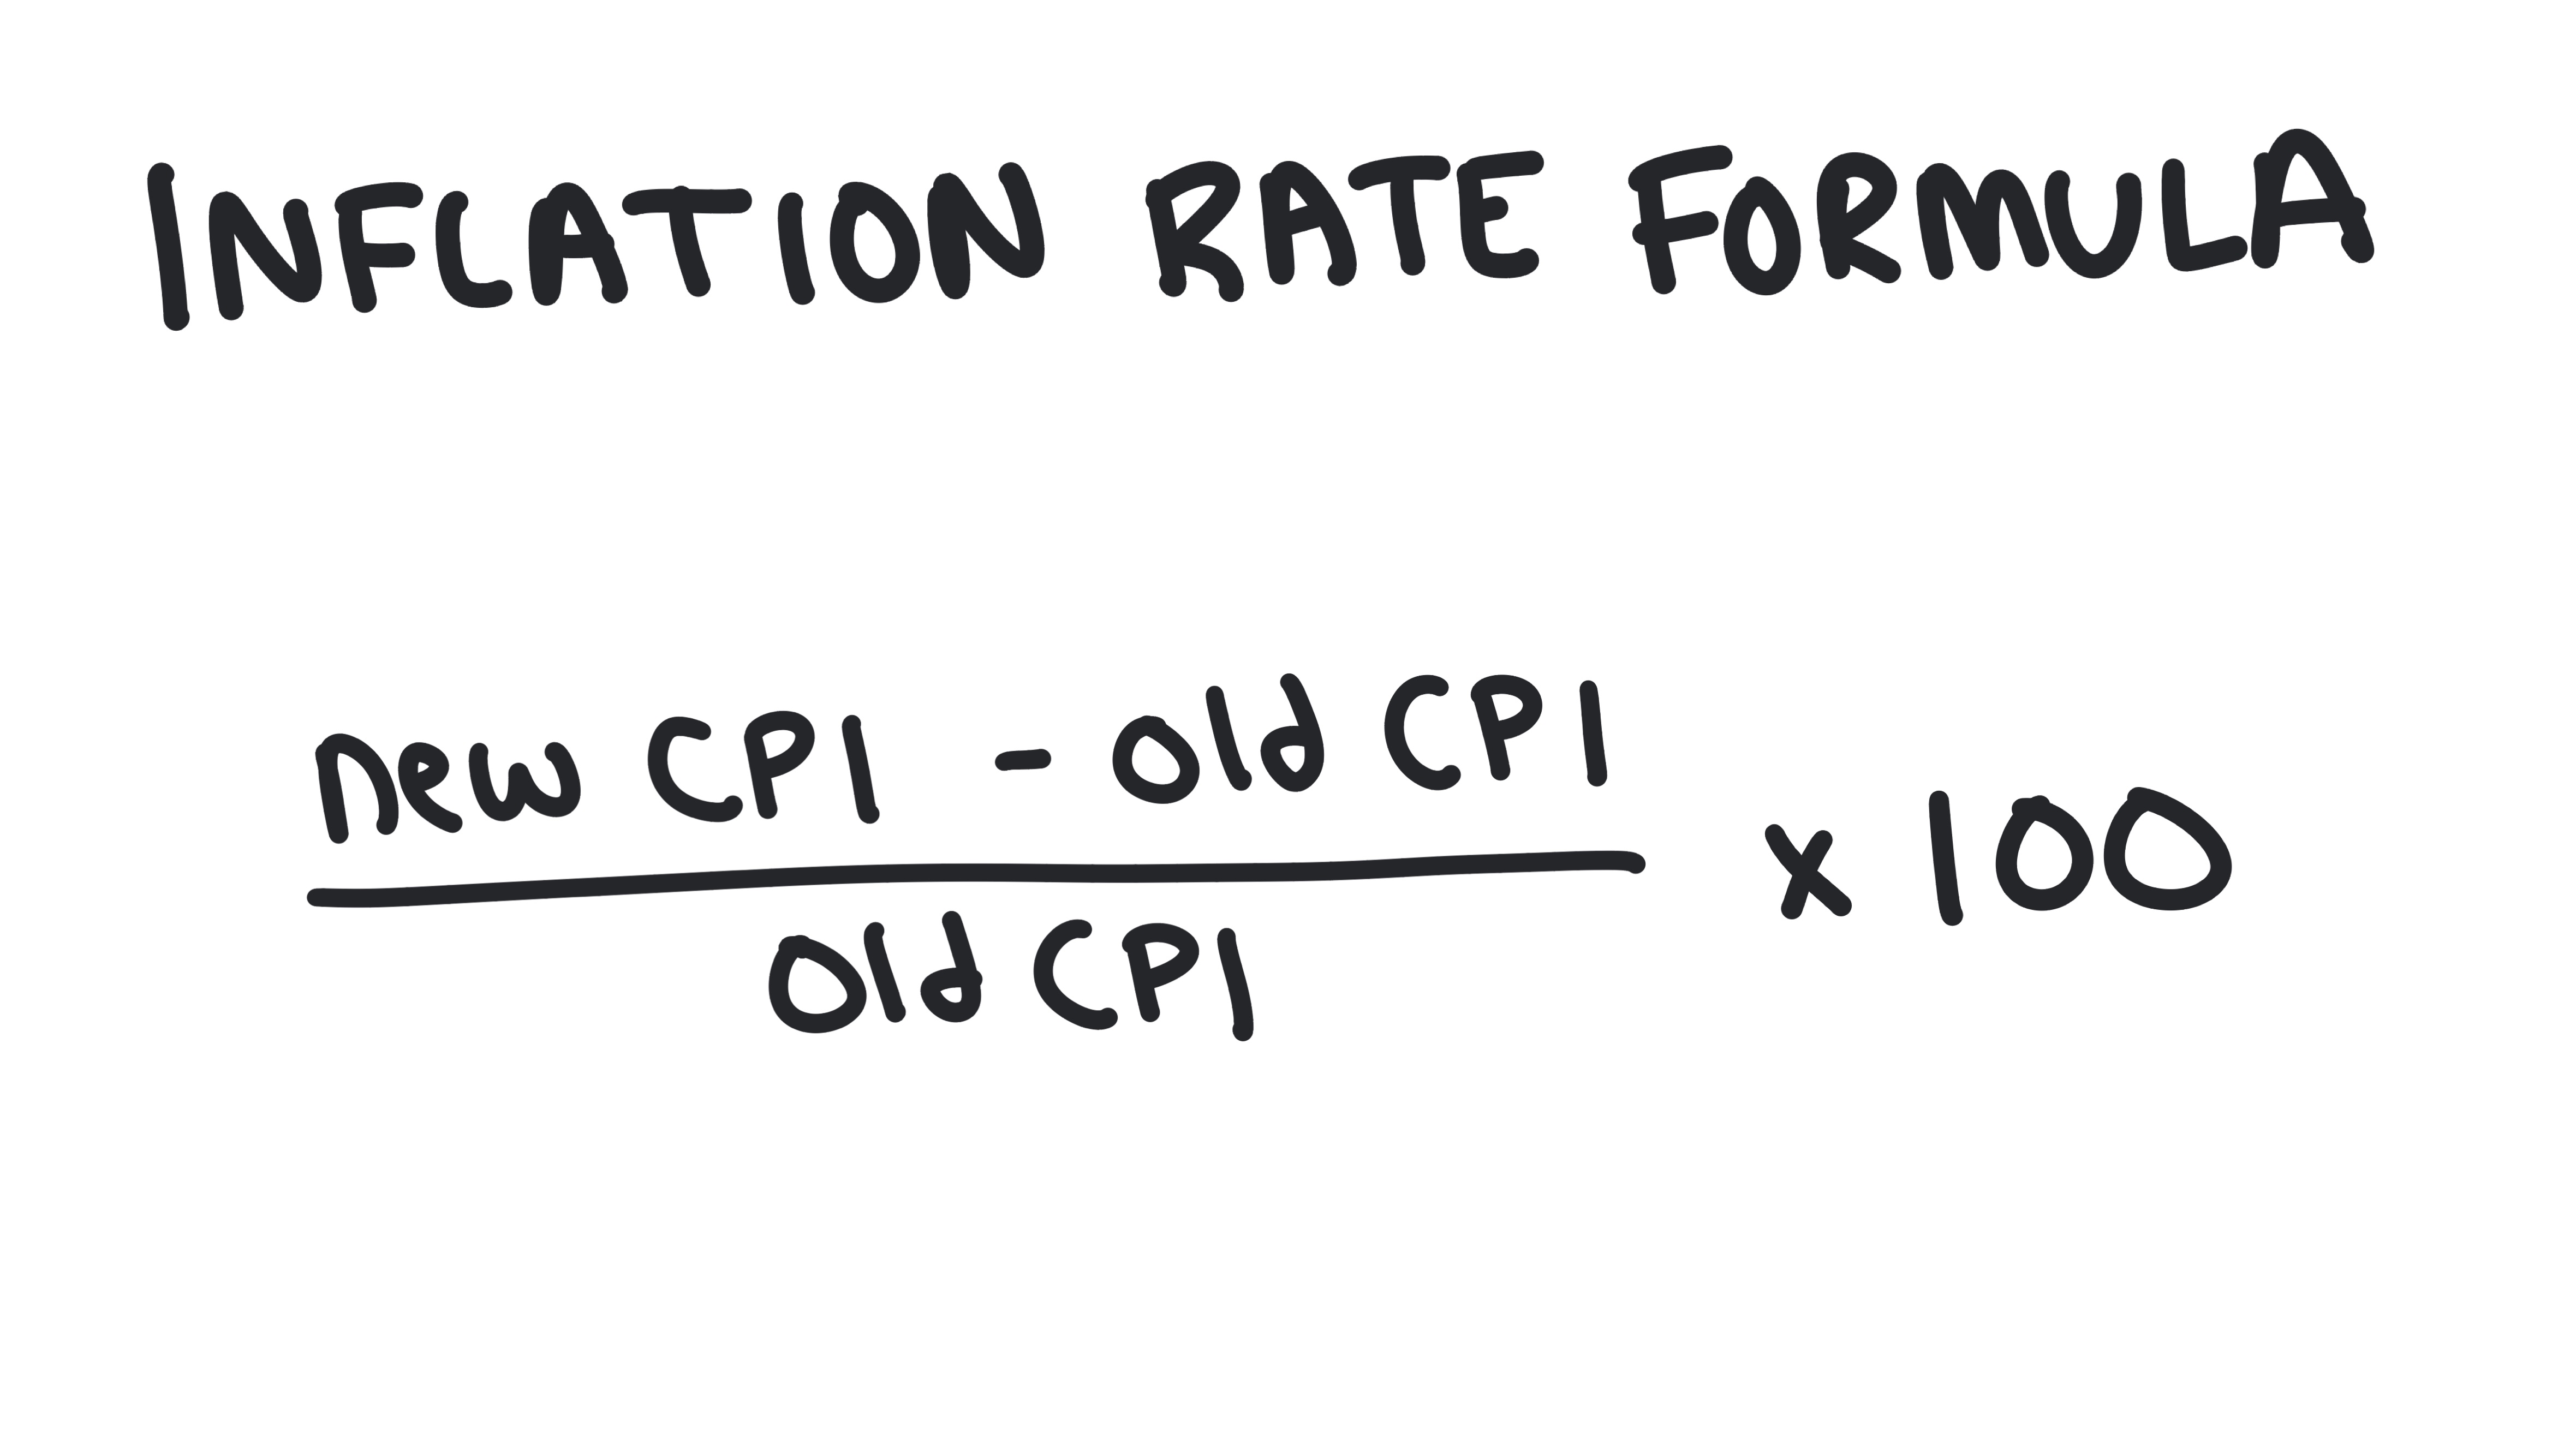 INFLATION RATE FORMULA
new CPI - old CPI
x 100
old CPI